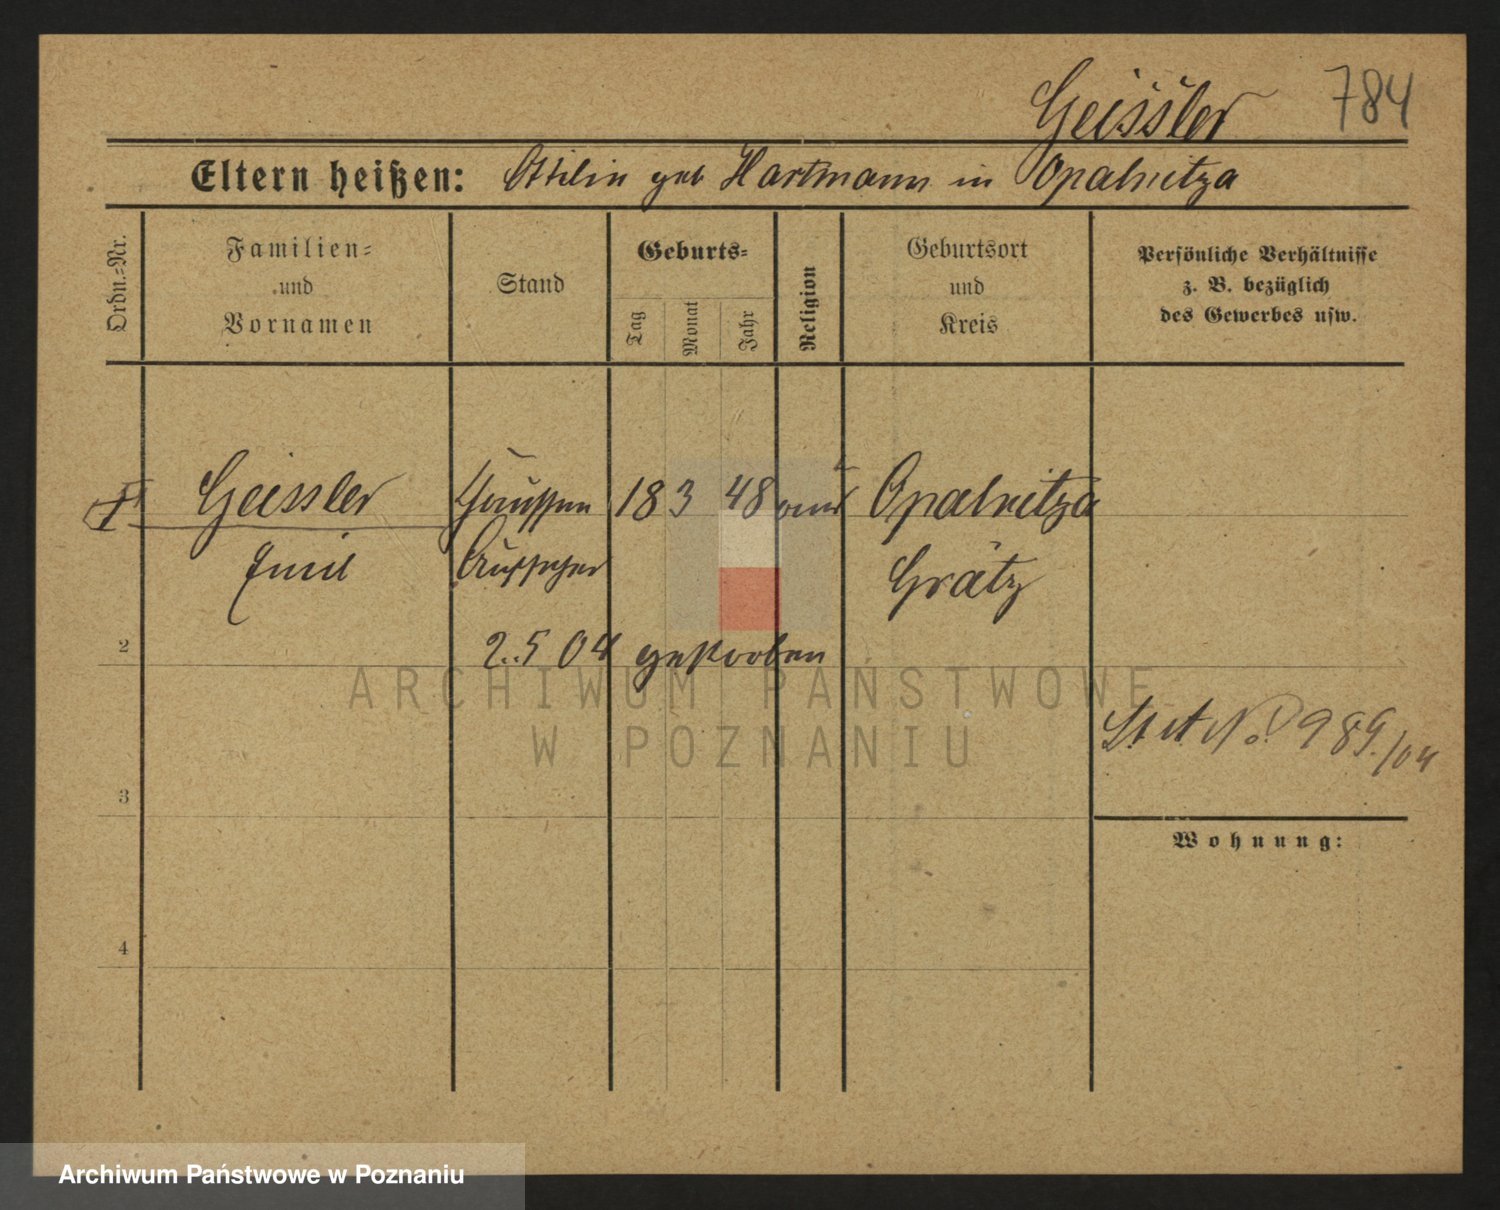 Geissler 784
Eltern heißen: Ottilie geb Hartmann in Opalenitza
Ordn.=Nr.
Familien=
und
Vornamen
Stand
Geburts=
Tag
Monat
Jahr
Religion
Geburtsort
und
Kreis
Persönliche Verhältnisse
z. B. bezüglich
des Gewerbes usw.
Geissler Chaussee 18 3 48 Opalenitza
Emil Aufseher Grätz
2
2.5 04 gestorben
St A No. 989./04
3
Wohnung:
4
ARCHIWUM PAŃSTWOWE
W POZNANIU
Archiwum Państwowe w Poznaniu